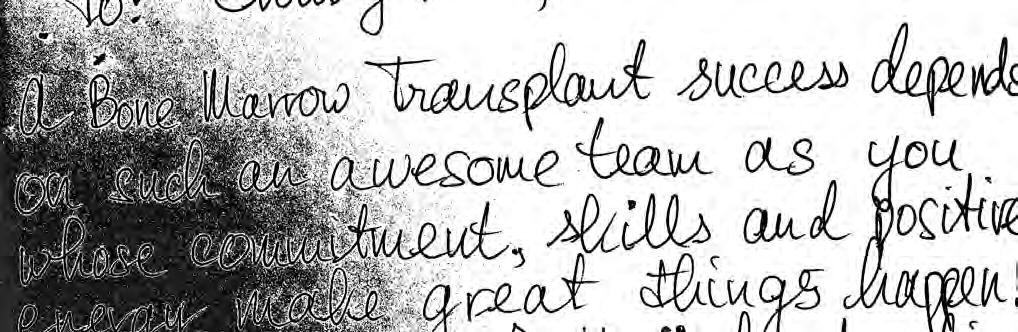 To:
A Bone Marrow Transplant success depends
on such an awesome team as you
whose commitment, skills and positive
energy make great things happen!